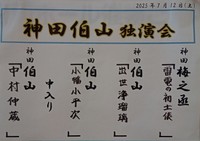 2025年7月12日(土
神田伯山 独演会
神田 梅之丞
「雷電の初土俵」
神田 伯山
「出世浄瑠璃」
神田 伯山
「小幡小平次」
中入り
神田 伯山
「中村仲蔵」